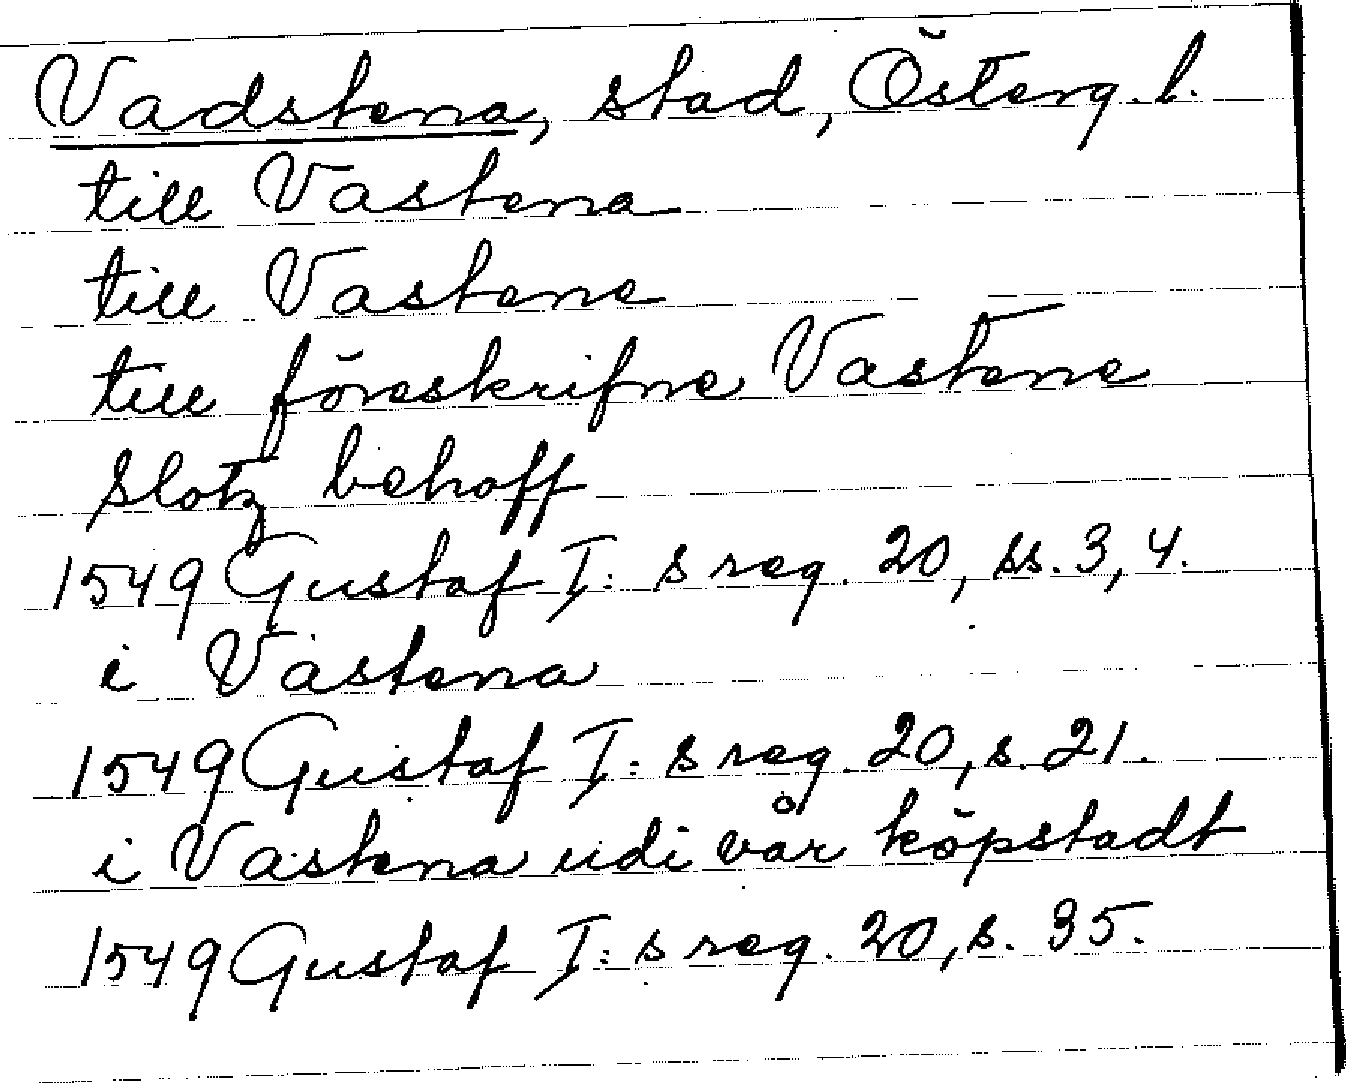 Vadstena, stad, Österg. l.
till Vastena
till Vastene
till föreskrifne Vastene
slotz behoff
1549 Gustaf I: s reg. 20, ss. 3, 4.
i Vastena
1549 Gustaf I: s reg. 20, s. 21.
i Vastena udi vår köpstadt
1549 Gustaf I: s reg. 20, s. 35.